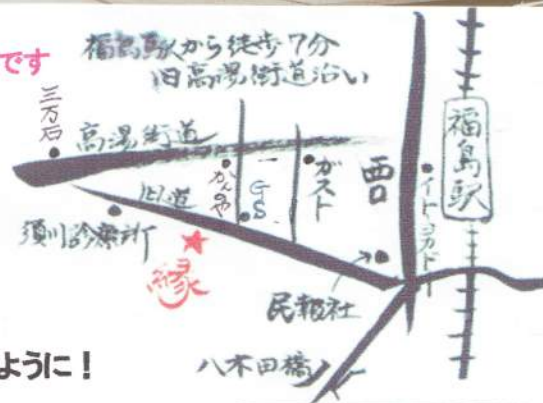 です
福島駅から徒歩7分
旧高湯街道沿い
三万石
高湯街道
かんのや
GS
ガスト
西口
イトーヨカドー
福島駅
旧道
須川診療所
縁
民報社
八木田橋
ように！